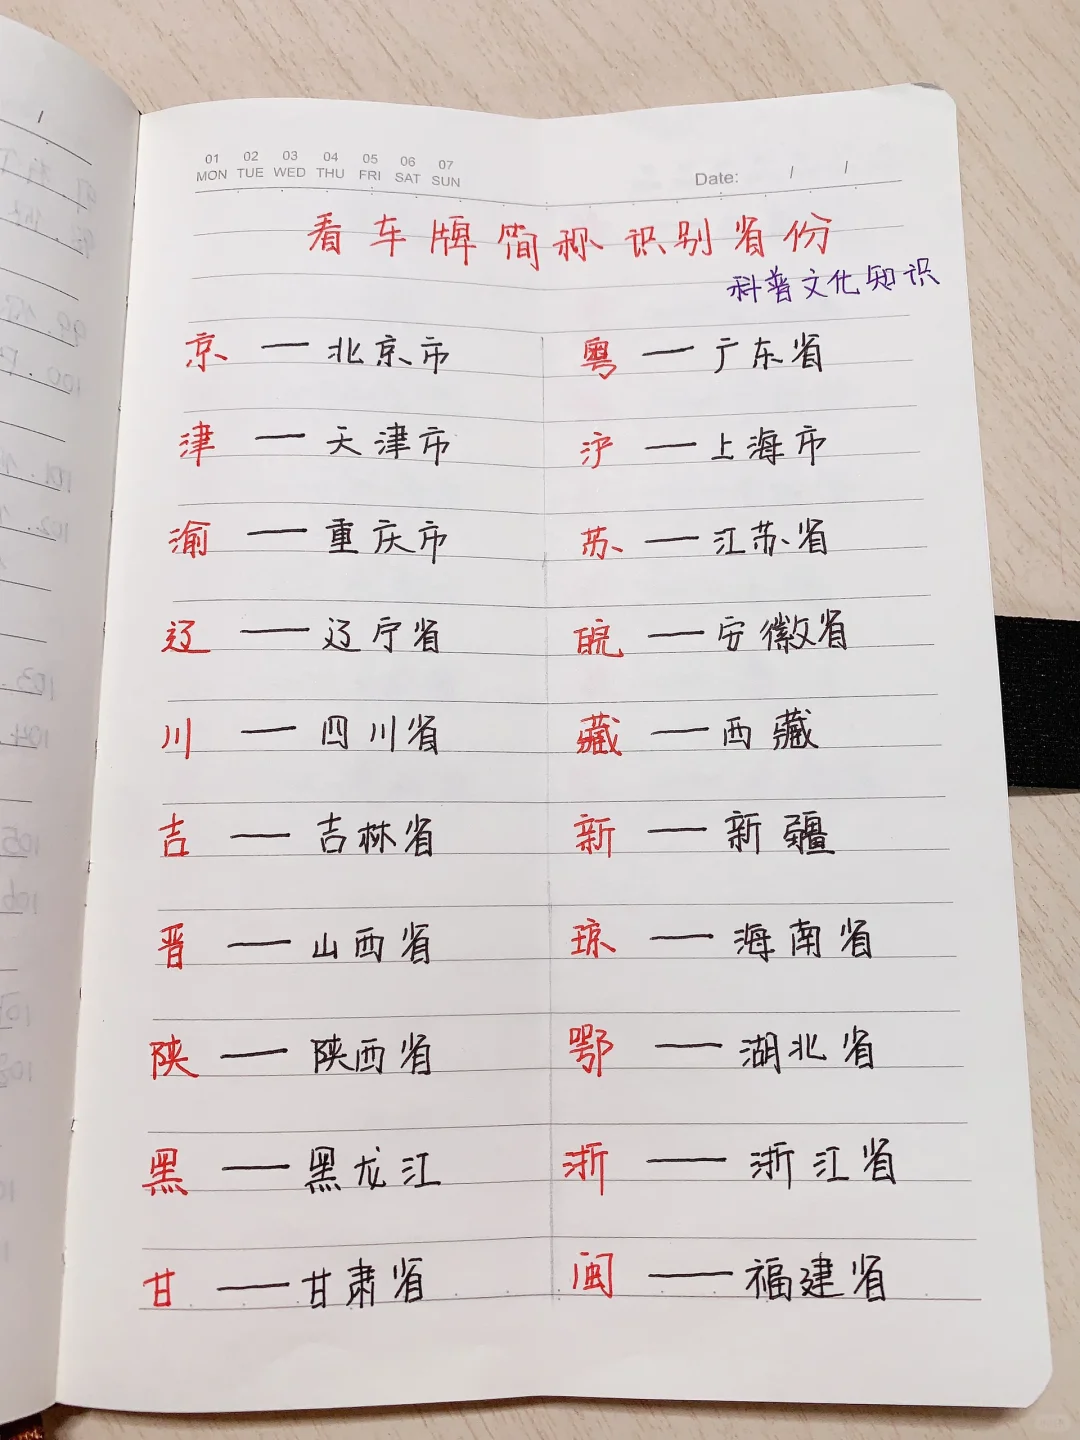 01 02 03 04 05 06 07
MON TUE WED THU FRI SAT SUN
Date: / /
看车牌简称识别省份
科普文化知识
京 — 北京市 粤 — 广东省
津 — 天津市 沪 — 上海市
渝 — 重庆市 苏 — 江苏省
辽 — 辽宁省 皖 — 安徽省
川 — 四川省 藏 — 西藏
吉 — 吉林省 新 — 新疆
晋 — 山西省 琼 — 海南省
陕 — 陕西省 鄂 — 湖北省
黑 — 黑龙江 浙 — 浙江省
甘 — 甘肃省 闽 — 福建省